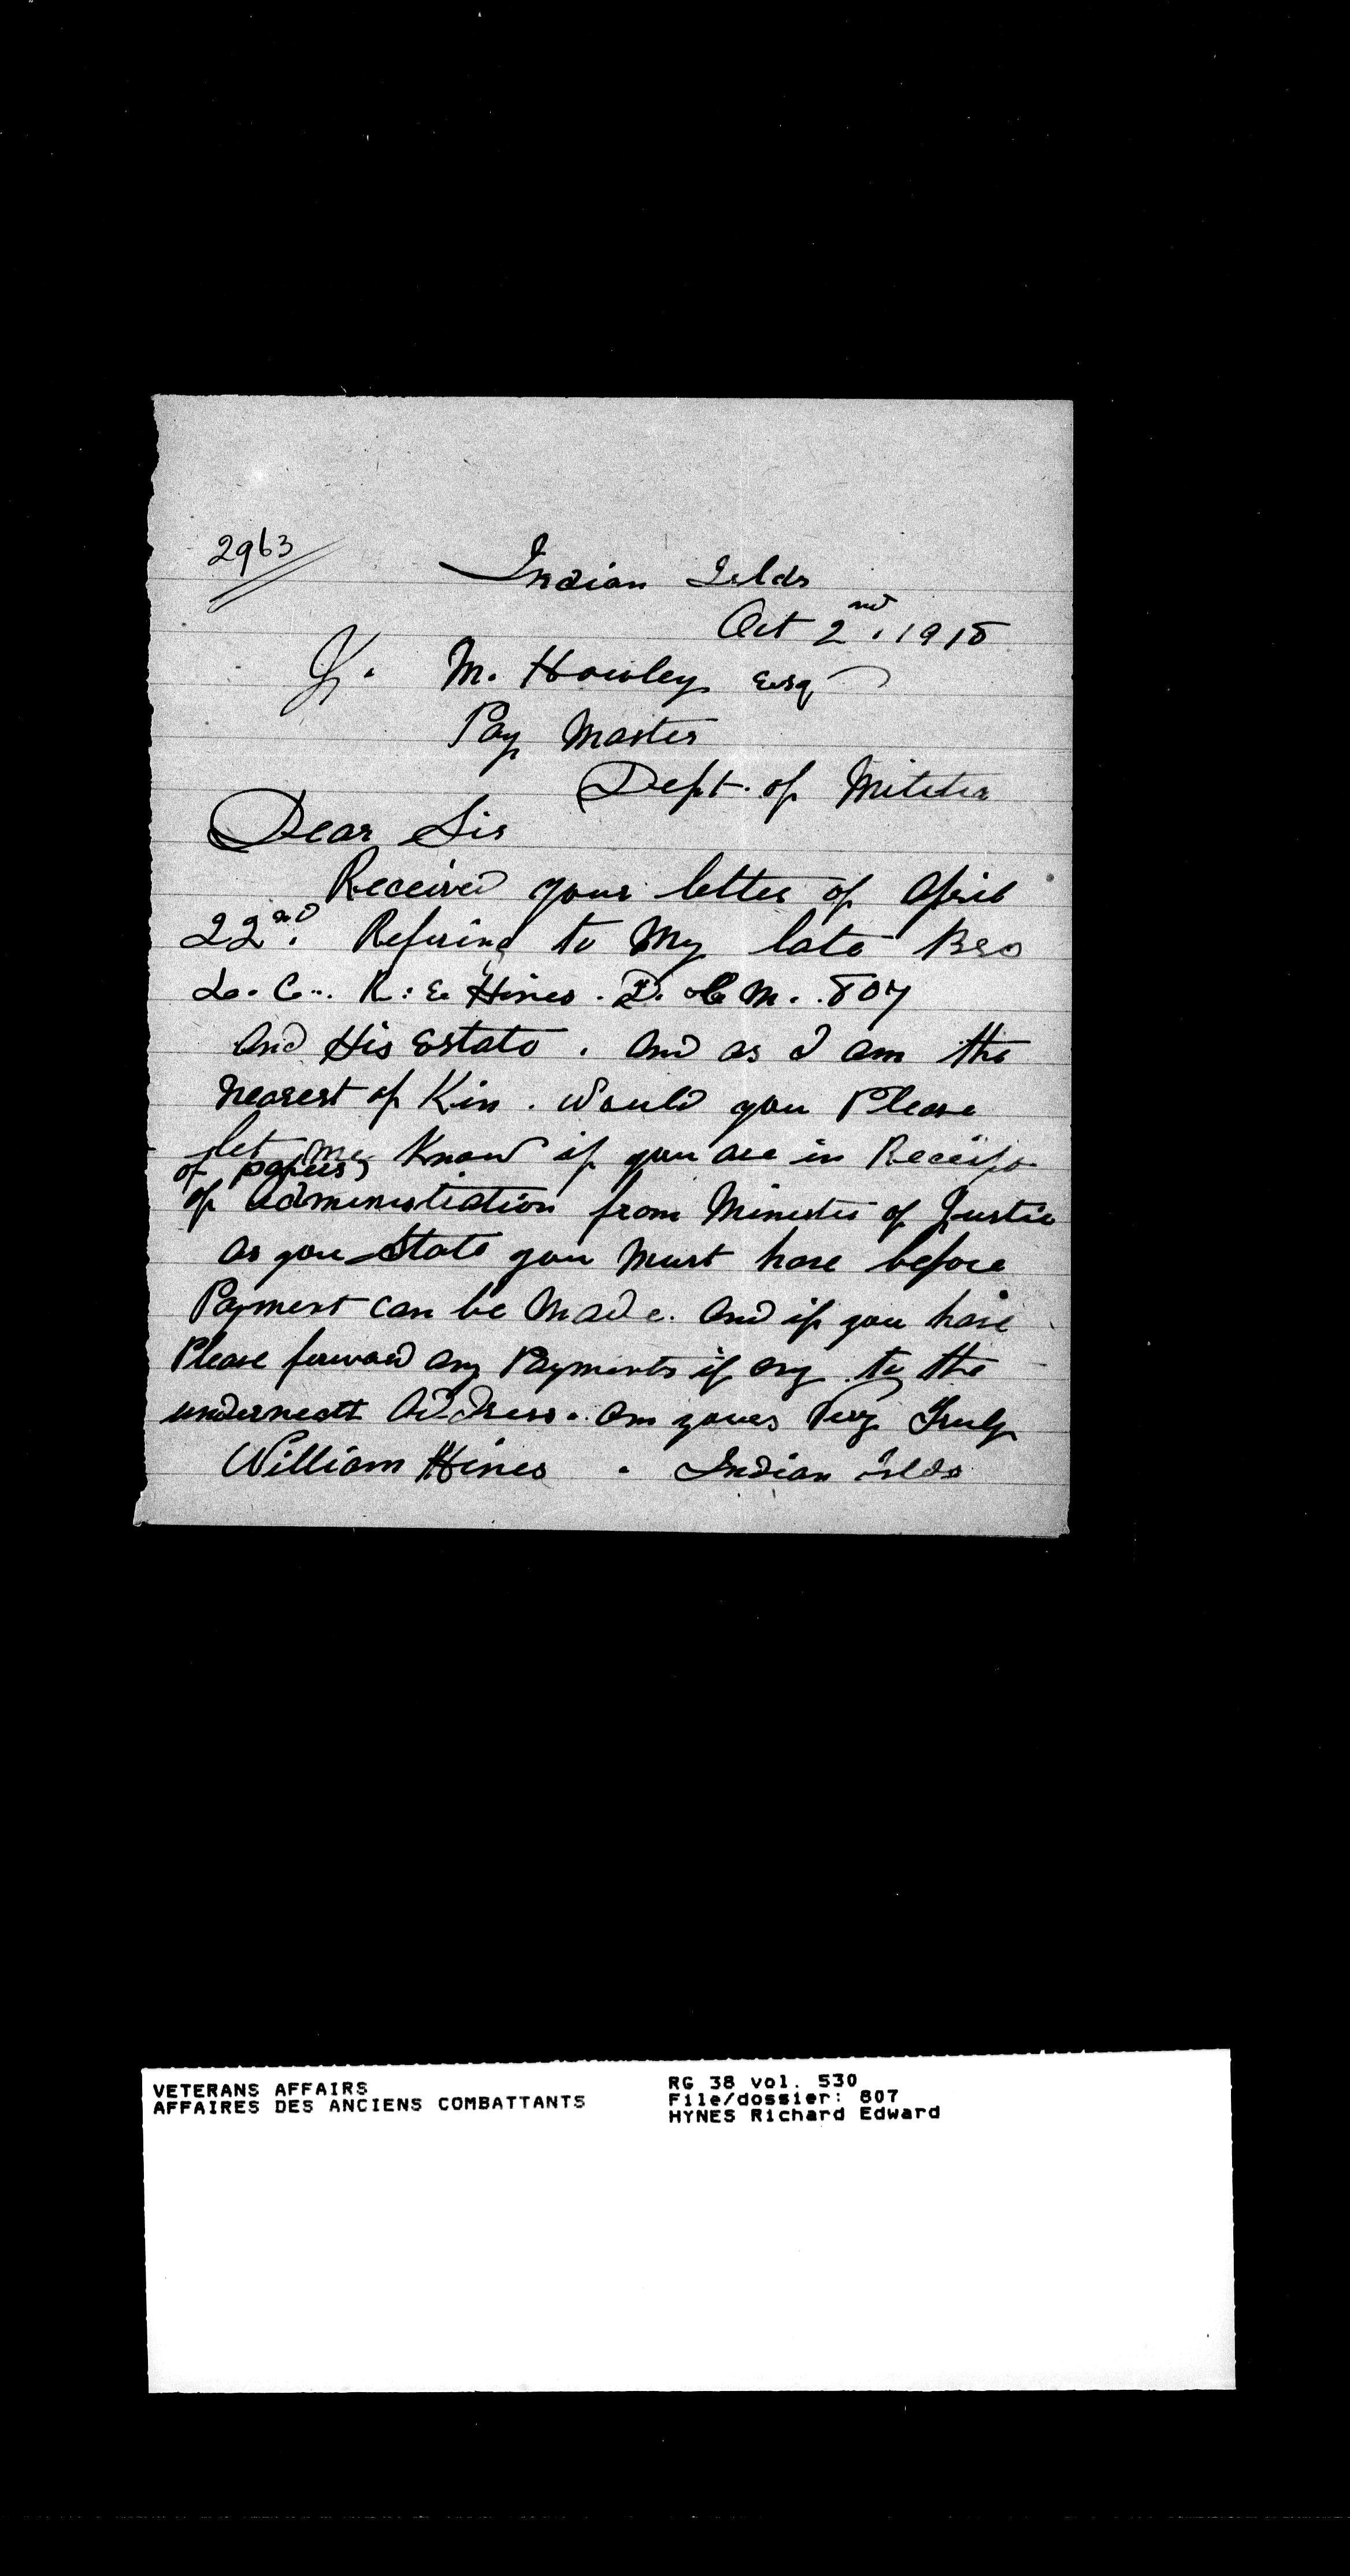 2963
Indian Islds
Oct 2nd. 1918
M. Howley Esq
Pay Master
Dept. of Militia
Dear Sir
Received your letter of April
22nd. Refering to My late Bro
L. C.. R: E Hines. D. C M. . 807
and His Estate. and as I am the
nearest of Kin. would you Please
let me Know if you are in Receipt
of papers,
of administration from Minister of Justice
as you State you Must have before
Payment can be Made. and if you have
Please forward any Payments if any to the
underneath Address. am yours Very Truly
William Hines . Indian Islds
VETERANS AFFAIRS
AFFAIRES DES ANCIENS COMBATTANTS
RG 38 vol. 530
File/dossier: 807
HYNES Richard Edward